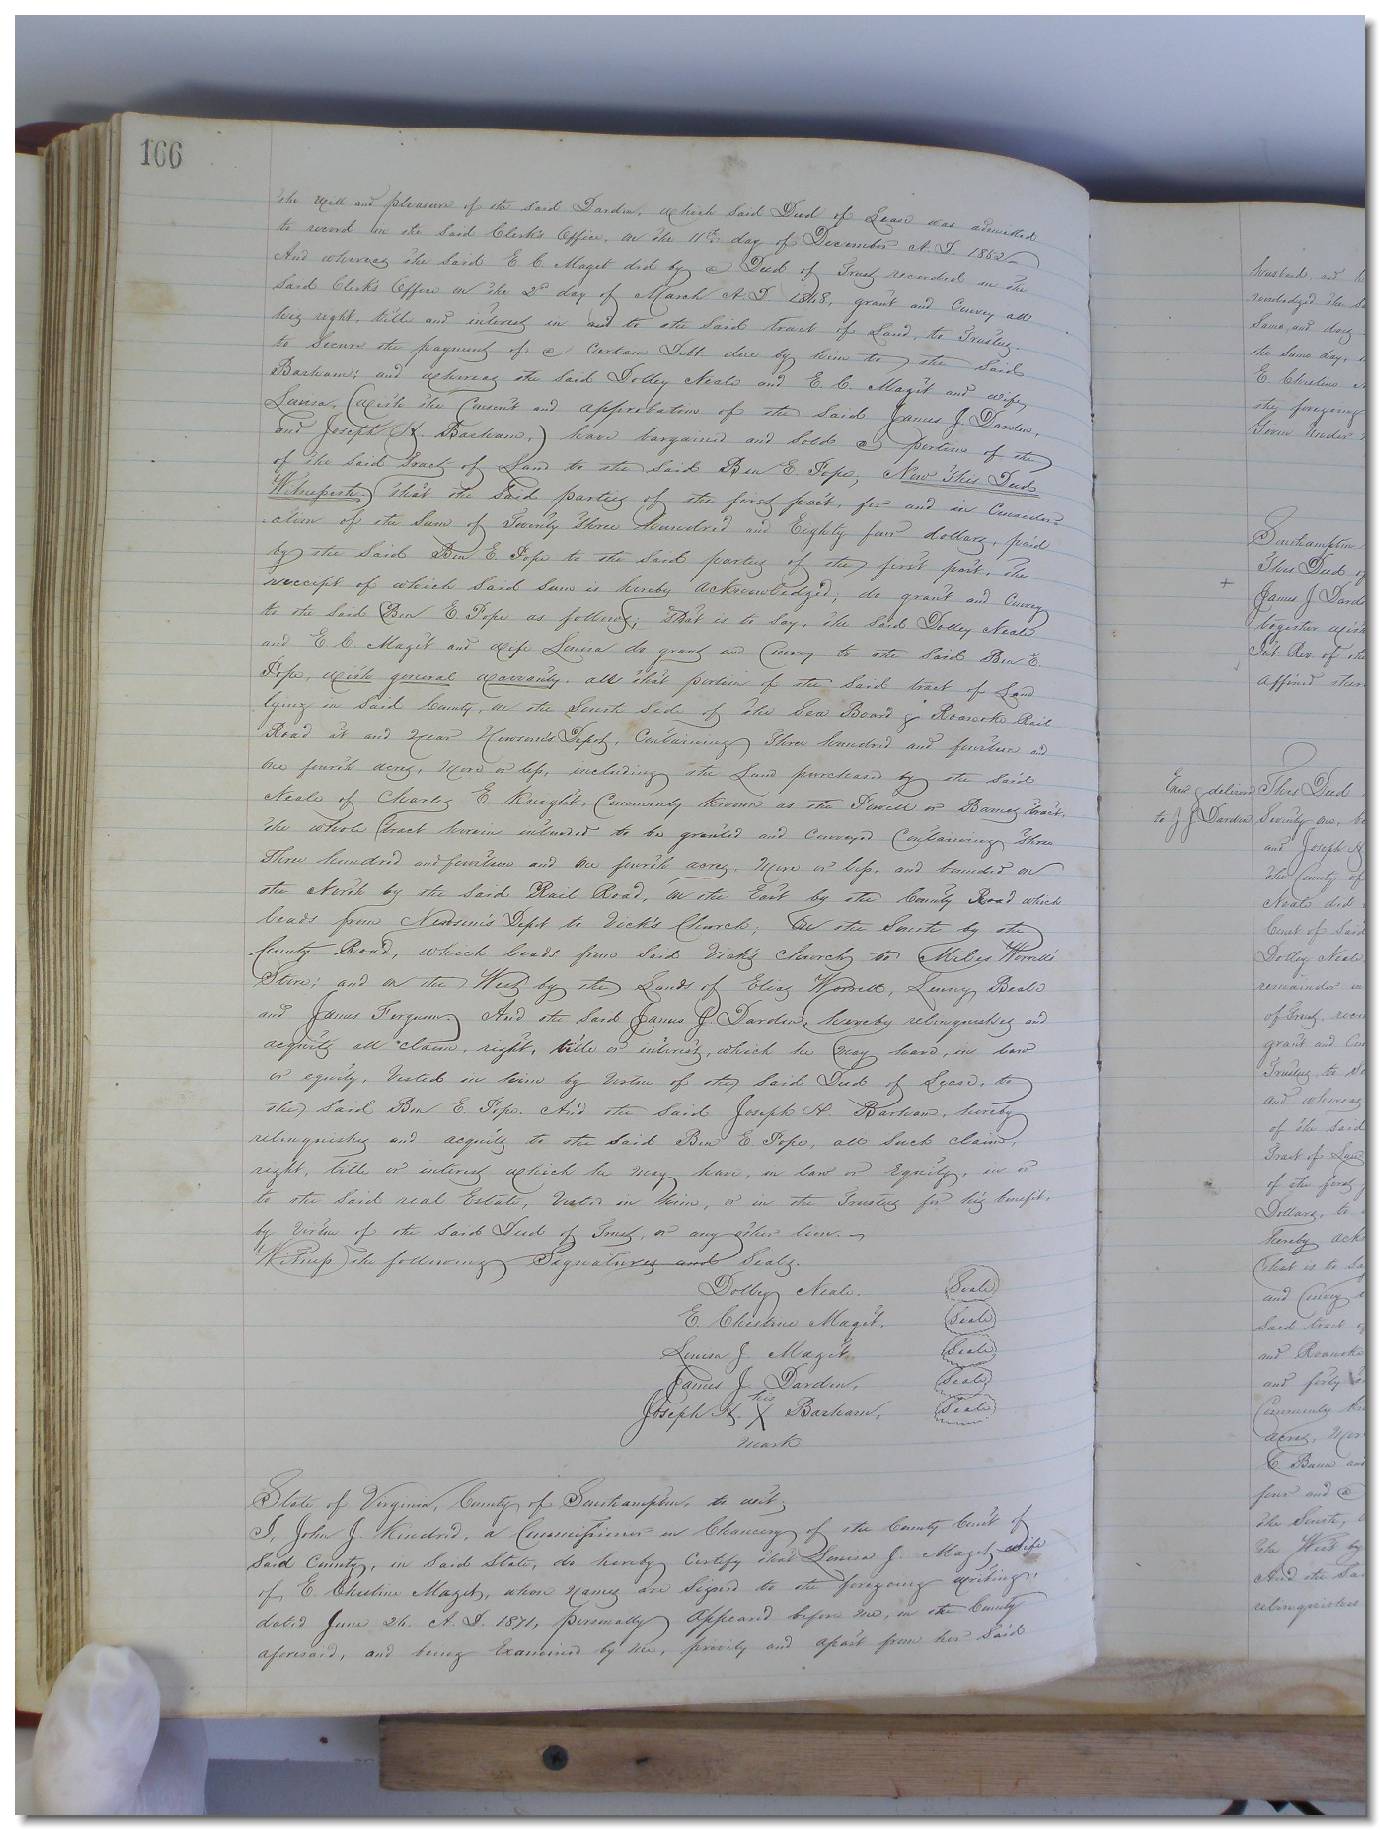 166
the Will and pleasure of the said Darden, which said Deed of Lease was admitted
to record in the said Clerk's Office, on the 11th day of December A.D. 1862
And whereas the said E C. Maget did by a Deed of Trust recorded in the
said Clerk's Office on the 2d day of March A.D. grant and Convey all
his right, title and interest in and to the said tract of Land, to Trustees
to Secure the payment of a certain Debt due by him to the said
Barham; and whereas the said Dolley Neale and E. C. Maget and wife
Louisa, (with the Consent and approbation of the said James J. Darden,
and Joseph H. Barham,) have bargained and sold a portion of the
of the said Tract of Land to the said Ben E. Pope, Now this Deed
Witnesseth that the said parties of the first part, for and in Consider-
-ation of the Sum of Twenty three hundred and Eighty four dollars, paid
by the said Ben E. Pope to the said parties of the first part, the
receipt of which said sum is hereby acknowledged; do grant and Convey
to the said Ben E. Pope as follows; that is to say, the said Dolley Neale
and E. C. Maget and wife Louisa do grant and Convey to the said Ben E.
Pope, with general warranty, all that portion of the said tract of Land
lying in said County, on the South Side of the Sea Board & Roanoke Rail
Road at and Near Newsom's Depot, Containing Three hundred and fourteen and
one fourth acres, More or less, including the Land purchased by the said
Neale of Charles E. Knight, Commonly known as the Powell or Barnes tract,
the whole tract herein intended to be granted and Conveyed Containing three
Three hundred and fourteen and one fourth acres, More or less, and bounded on
the North by the said Rail Road, on the East by the County Road which
leads from Newsom's Depot to Vick's Church; on the South by the
County Road, which leads from said Vick's church to Miles Worrell's
Store; and on the West by the Lands of Elias Worrell, Beale
and James Ferguson And the said James J. Darden, hereby relinquishes and
acquits all claim, right, title or interest, which he may have, in law
or equity, Vested in him by Virtue of the said Deed of Lease, to
the said Ben E. Pope. And the said Joseph H. Barham, hereby
relinquishes and acquits to the said Ben E Pope, all such claim,
right, title or interest which he may have, in law or Equity, in or
to the said real Estate, Vested in him, or in the Trustees for his benefit,
by Virtue of the said Deed of Trust, or any other lien.
Witness the following Signatures and Seals.
Dolley Neale. Seal
E. Christine Maget. Seal
Louisa J. Maget. Seal
James J. Darden, Seal
his
Joseph H. X Barham, Seal
mark
State of Virginia, County of Southampton, to wit;
I, John J. Kindred, a Commissioner in Chancery of the County Court of
Said County, in said State, do hereby certify that Louisa J. Maget wife
of E. Christine Maget, whose names are signed to the foregoing writing,
dated June 26. A.D. 1871, personally appeared before me, in the County
aforesaid, and being Examined by me, privily and apart from her said
husband, and
the same day,
E. Christine
the foregoing
Given under
Southampton
This Deed of
+ James J Dard
together with
Int. Rev. of the
affixed
Exd & delivered This Deed
to J. J. Darden Seventy one,
and Joseph H
the County of
Neale did
Court of said
Dolley Neale
remainder in
of Trust, recor
grant and Con
Trustees to
and whereas
of the said
Tract of Lan
of the first
Dollars, to
hereby ack
that is to sa
and Convey
said tract of
and Roanoke
and forty
Commonly kn
acres, Mor
four and a
the South,
the West by
And the sa
relinquishes